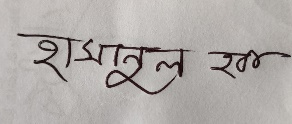 হাসানুল হক